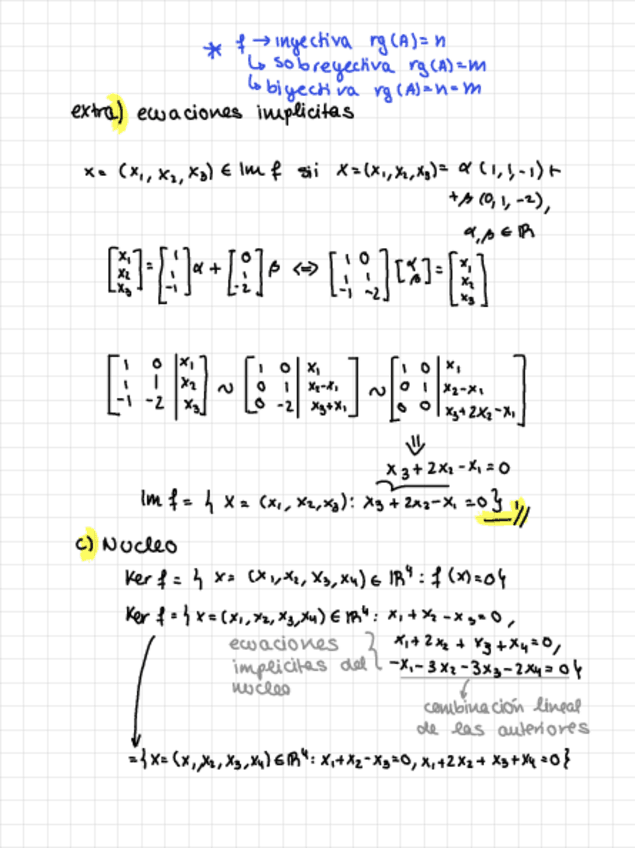 * f → inyectiva rg(A)=n
↳ sobreyectiva rg(A)=m
↳ biyectiva rg(A)=n=m
extra) ecuaciones implicitas
x = (x₁, x₂, x₃) ∈ Im f sii x=(x₁,x₂,x₃)= α (1,1,-1) +
+ β (0,1,-2),
α,β ∈ ℝ
[x₁ x₂ x₃] = [1 1 -1] α + [0 1 -2] β ⇔ [1 0 1 1 -1 -2] [α β] = [x₁ x₂ x₃]
[1 0 | x₁ 1 1 | x₂ -1 -2 | x₃] ~ [1 0 | x₁ 0 1 | x₂-x₁ 0 -2 | x₃+x₁] ~ [1 0 | x₁ 0 1 | x₂-x₁ 0 0 | x₃+2x₂-x₁]
⇓
x₃+2x₂-x₁=0
Im f = { x = (x₁, x₂, x₃): x₃+2x₂-x₁=0}
c) Nucleo
Ker f = { x= (x₁,x₂,x₃,x₄) ∈ ℝ⁴: f(x)=0}
Ker f = { x=(x₁,x₂,x₃,x₄) ∈ ℝ⁴: x₁+x₂-x₃=0,
x₁+2x₂+x₃+x₄=0,
-x₁-3x₂-3x₃-2x₄=0}
ecuaciones
implicitas del
nucleo
combinación lineal
de las anteriores
={x=(x₁,x₂,x₃,x₄)∈ℝ⁴: x₁+x₂-x₃=0, x₁+2x₂+x₃+x₄=0}